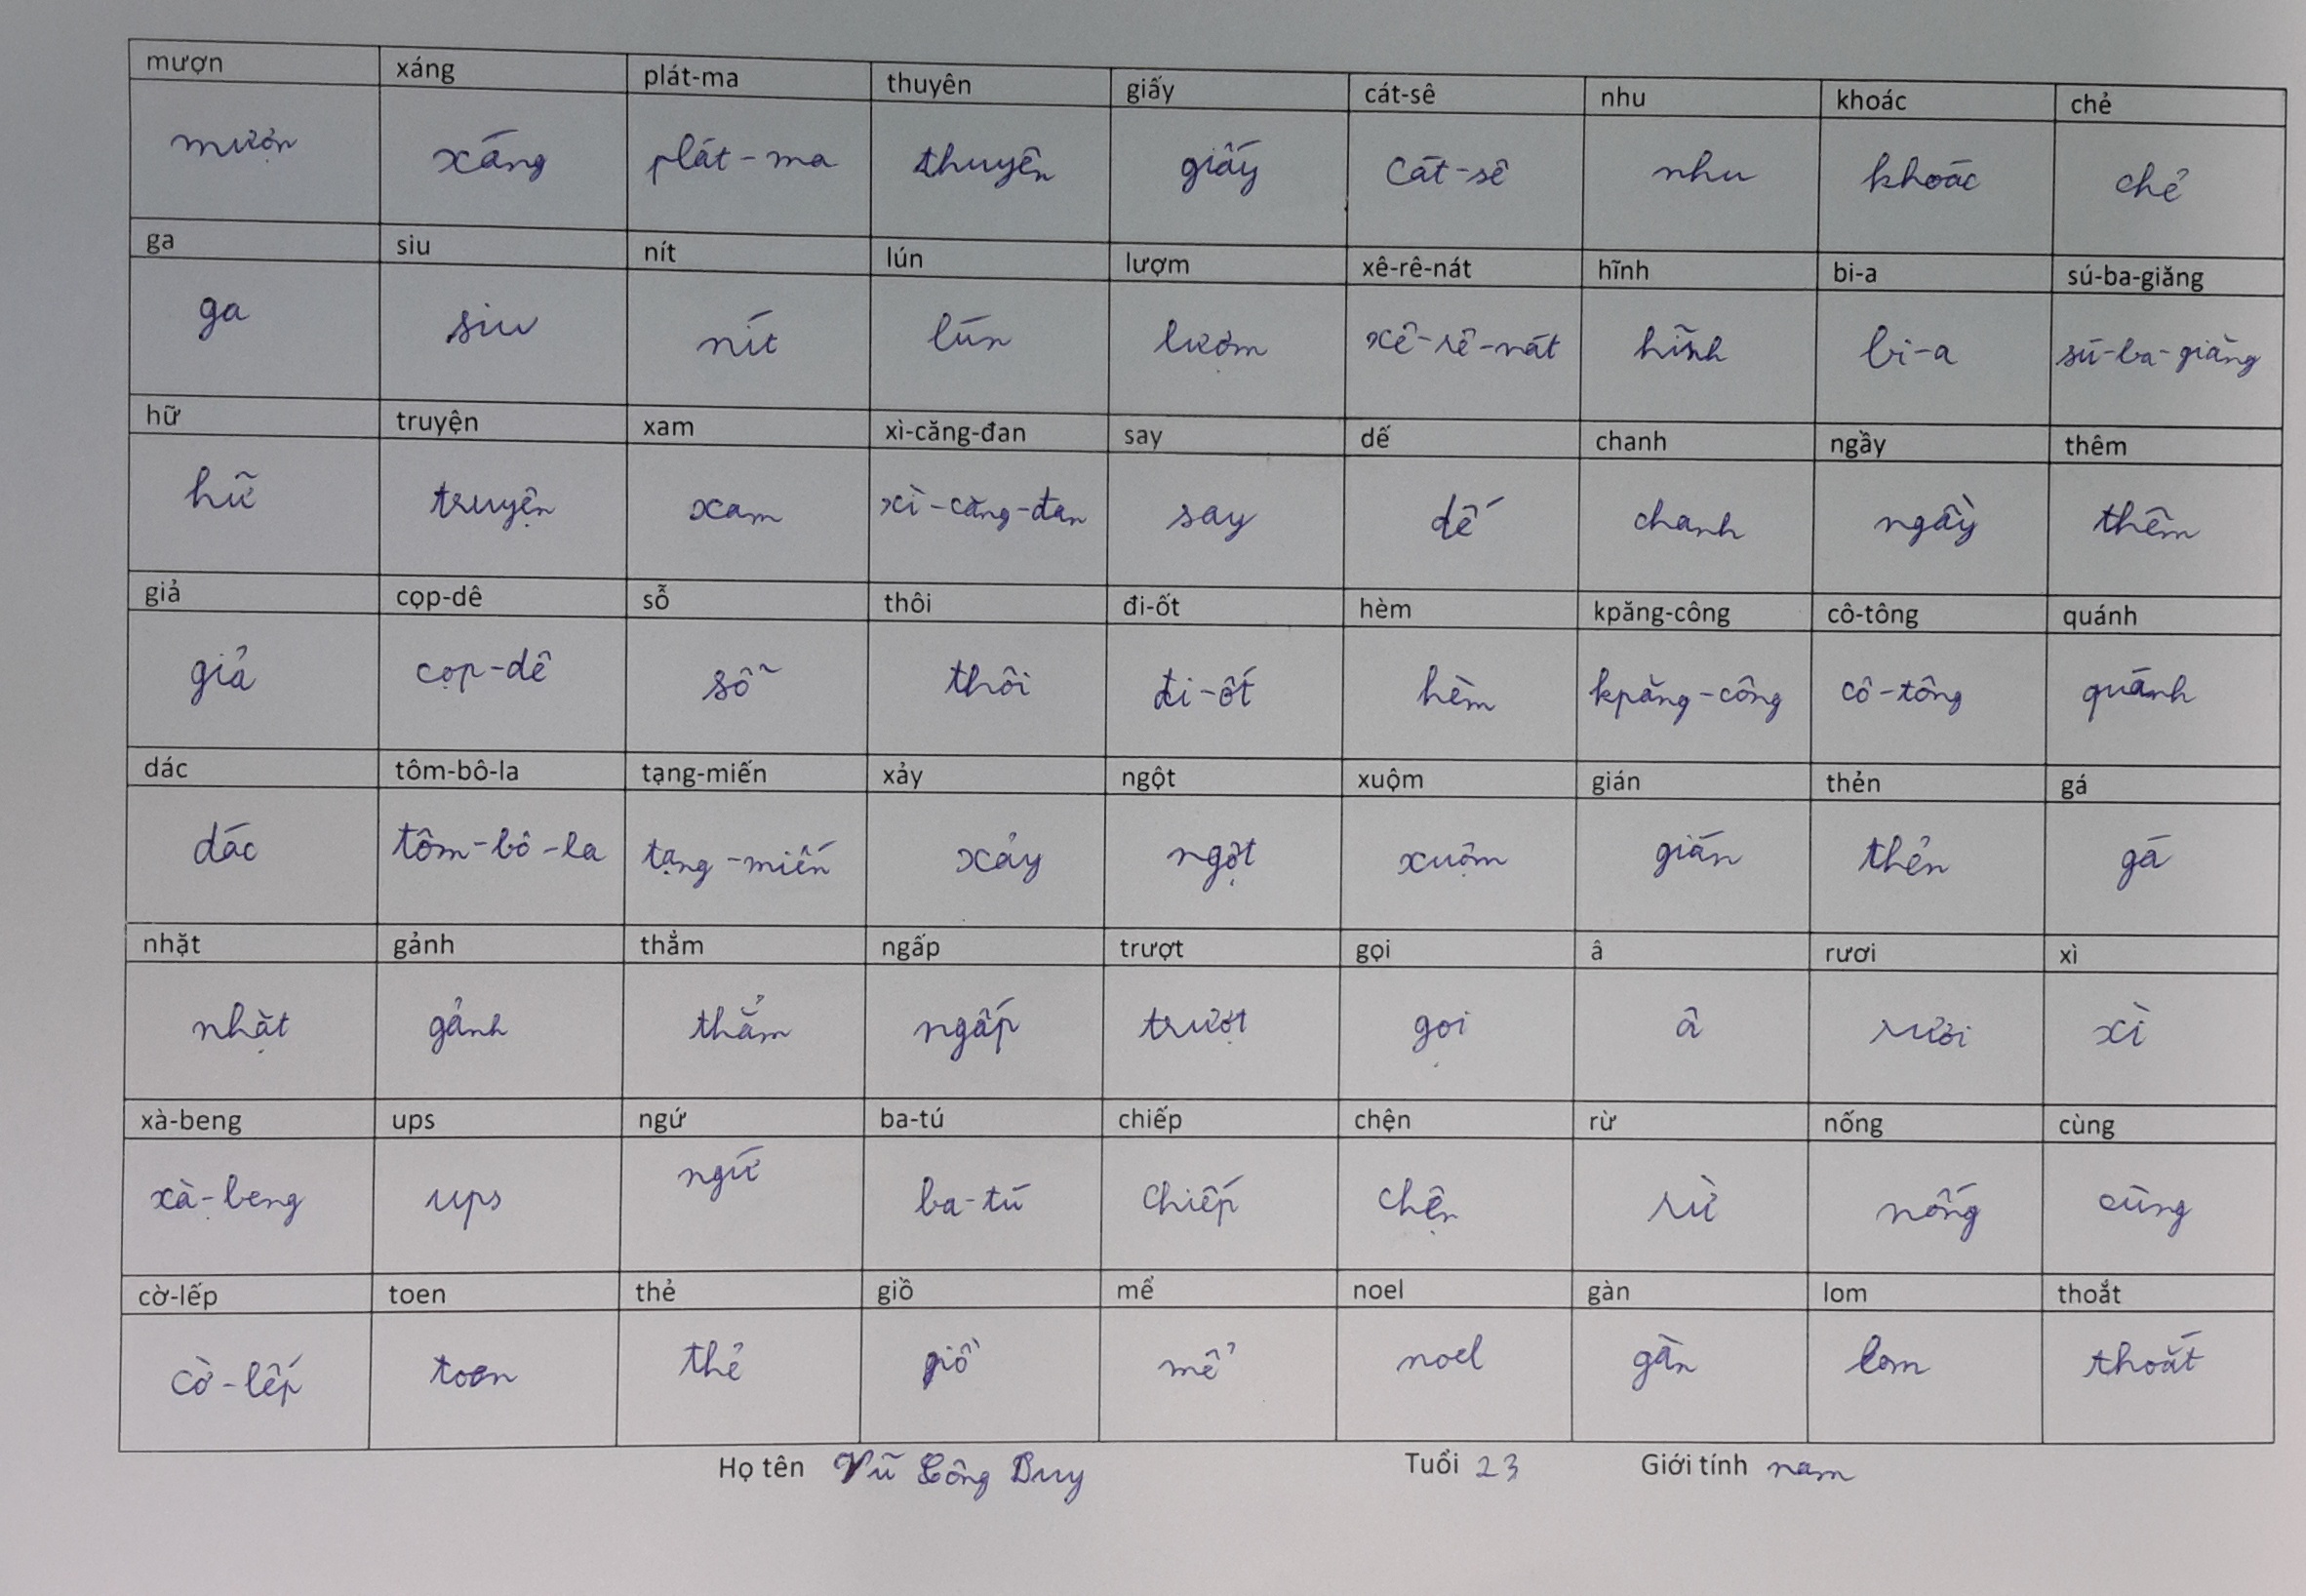 mượn xáng plát-ma thuyên giấy cát-sê nhu khoác chẻ
mượn xáng plát-ma thuyên giấy cát-sê nhu khoác chẻ
ga siu nít lún lượm xê-rê-nát hĩnh bi-a sú-ba-giăng
ga siu nít lún lượm xê-rê-nát hĩnh bi-a sú-ba-giăng
hữ truyện xam xì-căng-đan say dế chanh ngầy thêm
hữ truyện xam xì-căng-đan say dế chanh ngầy thêm
giả cọp-dê sỗ thôi đi-ốt hèm kpăng-công cô-tông quánh
giả cọp-dê sỗ thôi đi-ốt hèm kpăng-công cô-tông quánh
dác tôm-bô-la tạng-miến xảy ngột xuộm gián thẻn gá
dác tôm-bô-la tạng-miến xảy ngột xuộm gián thẻn gá
nhặt gảnh thẳm ngấp trượt gọi â rươi xì
nhặt gảnh thẳm ngấp trượt gọi â rươi xì
xà-beng ups ngứ ba-tú chiếp chện rừ nống cùng
xà-beng ups ngứ ba-tú chiếp chện rừ nống cùng
cờ-lếp toen thẻ giồ mể noel gàn lom thoắt
cờ-lếp toen thẻ giồ mể noel gàn lom thoắt
Họ tên Vũ Công Duy Tuổi 23 Giới tính nam